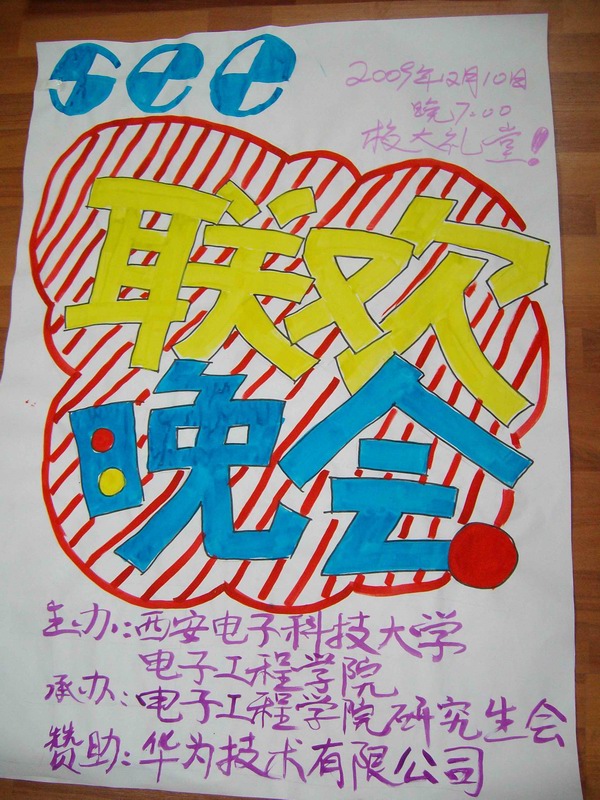 see
2009年12月10日
晚7:00
校大礼堂!
联欢
晚会
主办:西安电子科技大学
电子工程学院
承办:电子工程学院研究生会
赞助:华为技术有限公司